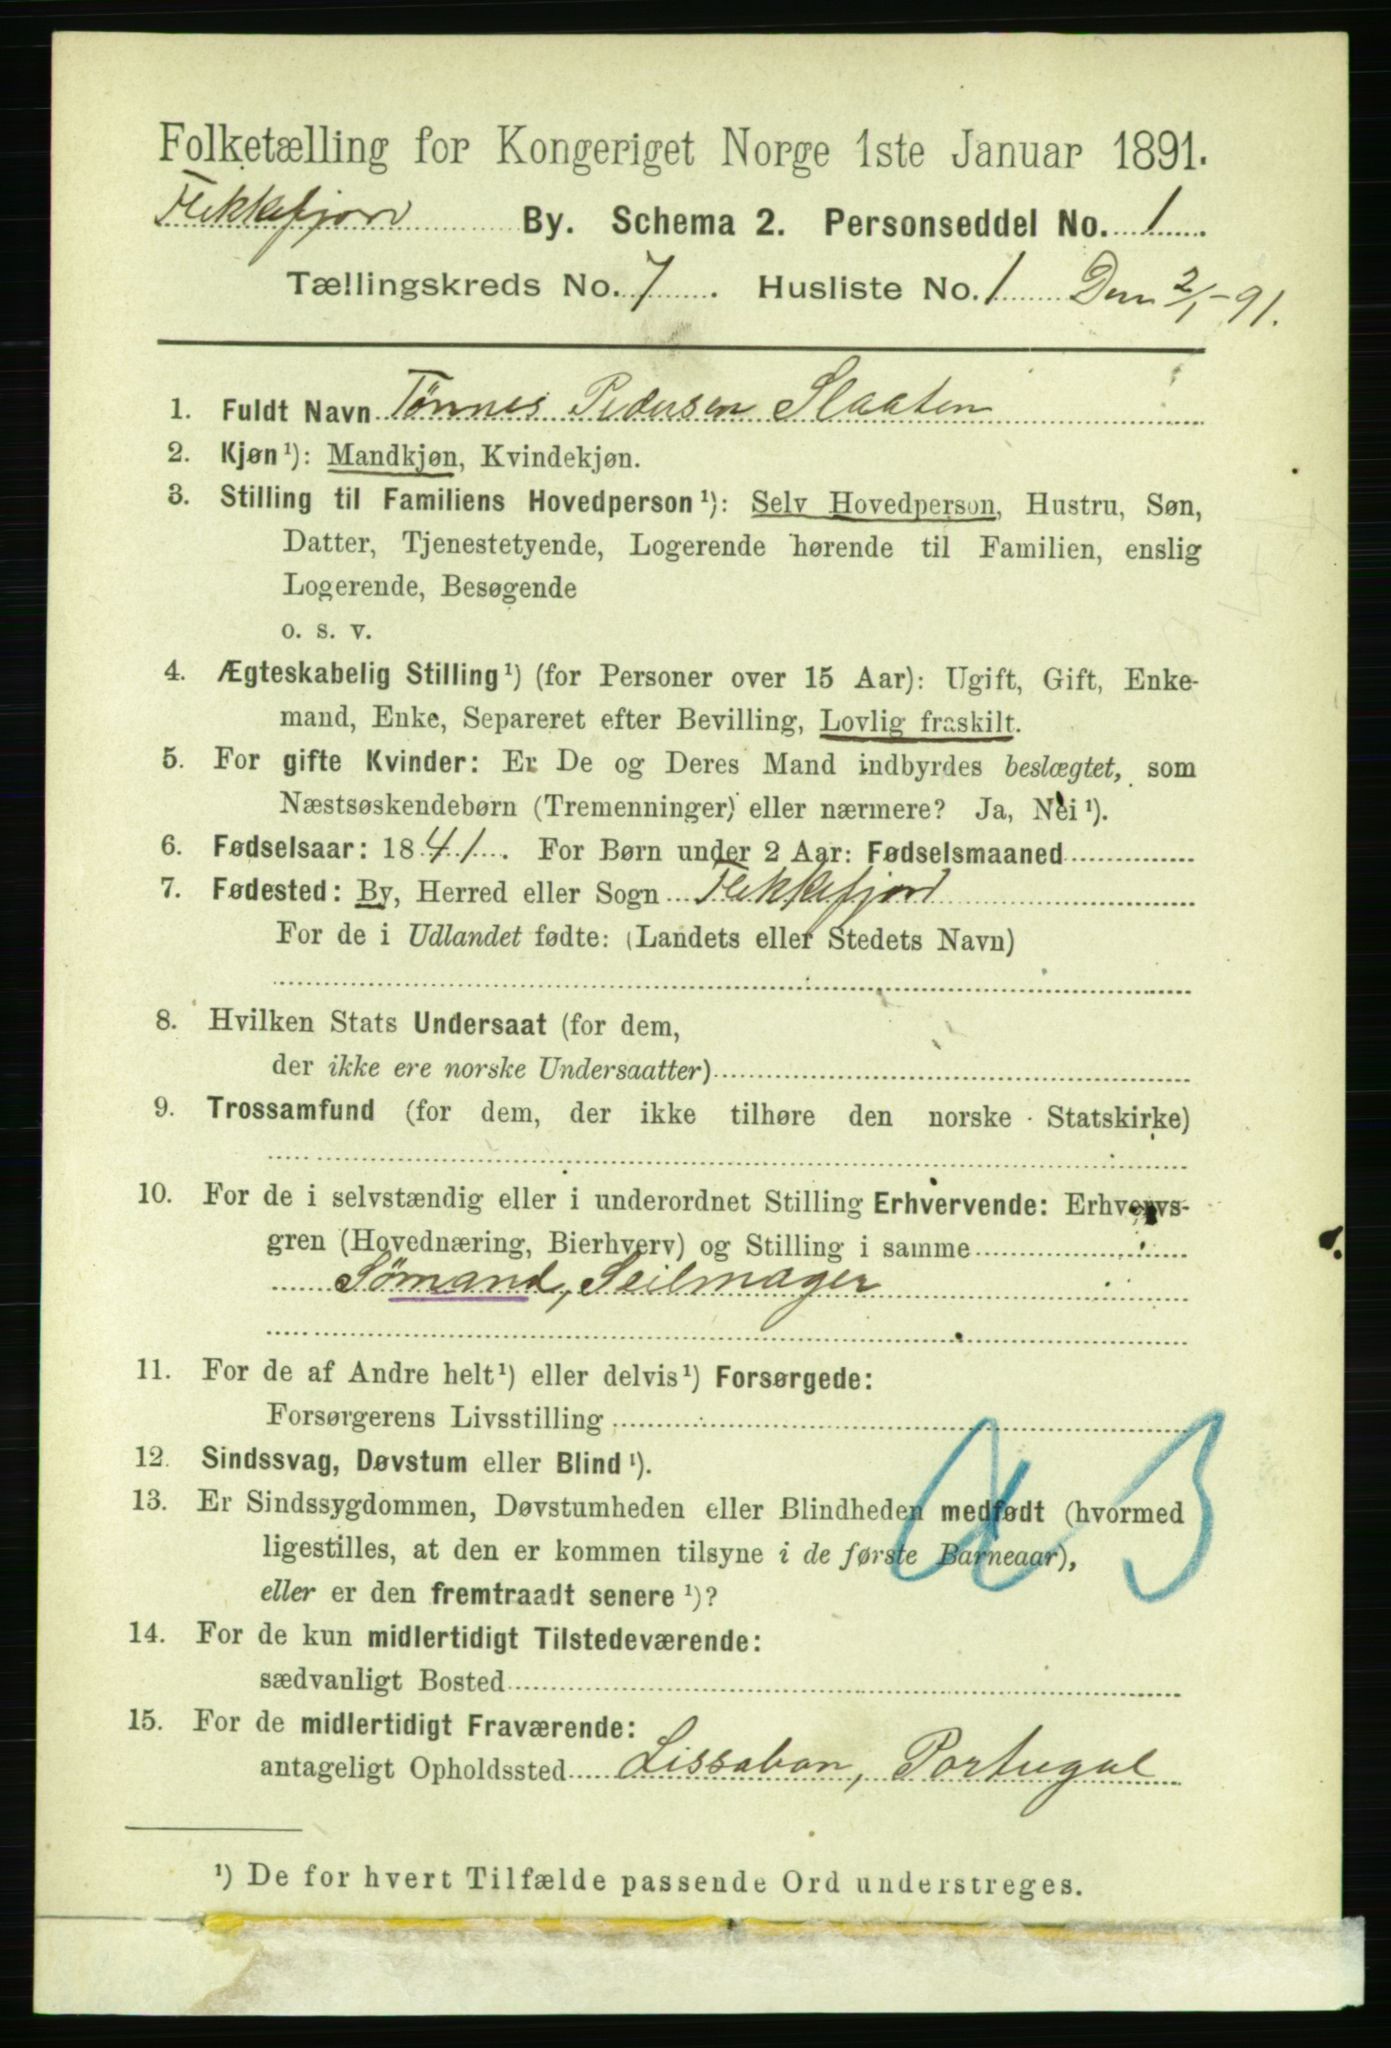 Folketælling for Kongeriget Norge 1ste Januar 1891.
Flekkefjord By. Schema 2. Personseddel No. 1
Tællingskreds No. 7. Husliste No. 1 Den 2/1-91.
1. Fuldt Navn Tønnes Pedersen Slaaten
2. Kjøn¹): Mandkjøn, Kvindekjøn.
3. Stilling til Familiens Hovedperson¹): Selv Hovedperson, Hustru, Søn,
Datter, Tjenestetyende, Logerende hørende til Familien, enslig
Logerende, Besøgende
o. s. v.
4. Ægteskabelig Stilling¹) (for Personer over 15 Aar): Ugift, Gift, Enke-
mand, Enke, Separeret efter Bevilling, Lovlig fraskilt.
5. For gifte Kvinder: Er De og Deres Mand indbyrdes beslægtet, som
Næstsøskendebørn (Tremenninger) eller nærmere? Ja, Nei¹).
6. Fødselsaar: 1841. For Børn under 2 Aar: Fødselsmaaned
7. Fødested: By, Herred eller Sogn Flekkefjord
For de i Udlandet fødte: (Landets eller Stedets Navn)
8. Hvilken Stats Undersaat (for dem,
der ikke ere norske Undersaatter)
9. Trossamfund (for dem, der ikke tilhøre den norske Statskirke)
10. For de i selvstændig eller i underordnet Stilling Erhvervende: Erhvervs-
gren (Hovednæring, Bierhverv) og Stilling i samme
Sømand, Seilmager
11. For de af Andre helt¹) eller delvis¹) Forsørgede:
Forsørgerens Livsstilling
12. Sindssvag, Døvstum eller Blind¹).
13. Er Sindssygdommen, Døvstumheden eller Blindheden medfødt (hvormed
ligestilles, at den er kommen tilsyne i de første Barneaar),
eller er den fremtraadt senere¹)?
14. For de kun midlertidigt Tilstedeværende:
sædvanligt Bosted
15. For de midlertidigt Fraværende:
antageligt Opholdssted Lissabon, Portugal
¹) De for hvert Tilfælde passende Ord understreges.